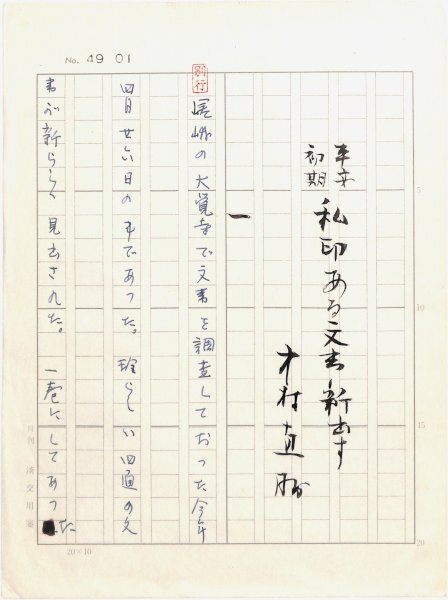 No. 49 01
平安
初期
私印ある文書新出す
中村直勝
一
別行
嵯峨の大覚寺で文書を調査しておった今年
四月廿六日の事であった。珍らしい四通の文
書が新らしく見出された。一巻にしてあった
5
10
15
20
月刊 淡交用箋
20×10